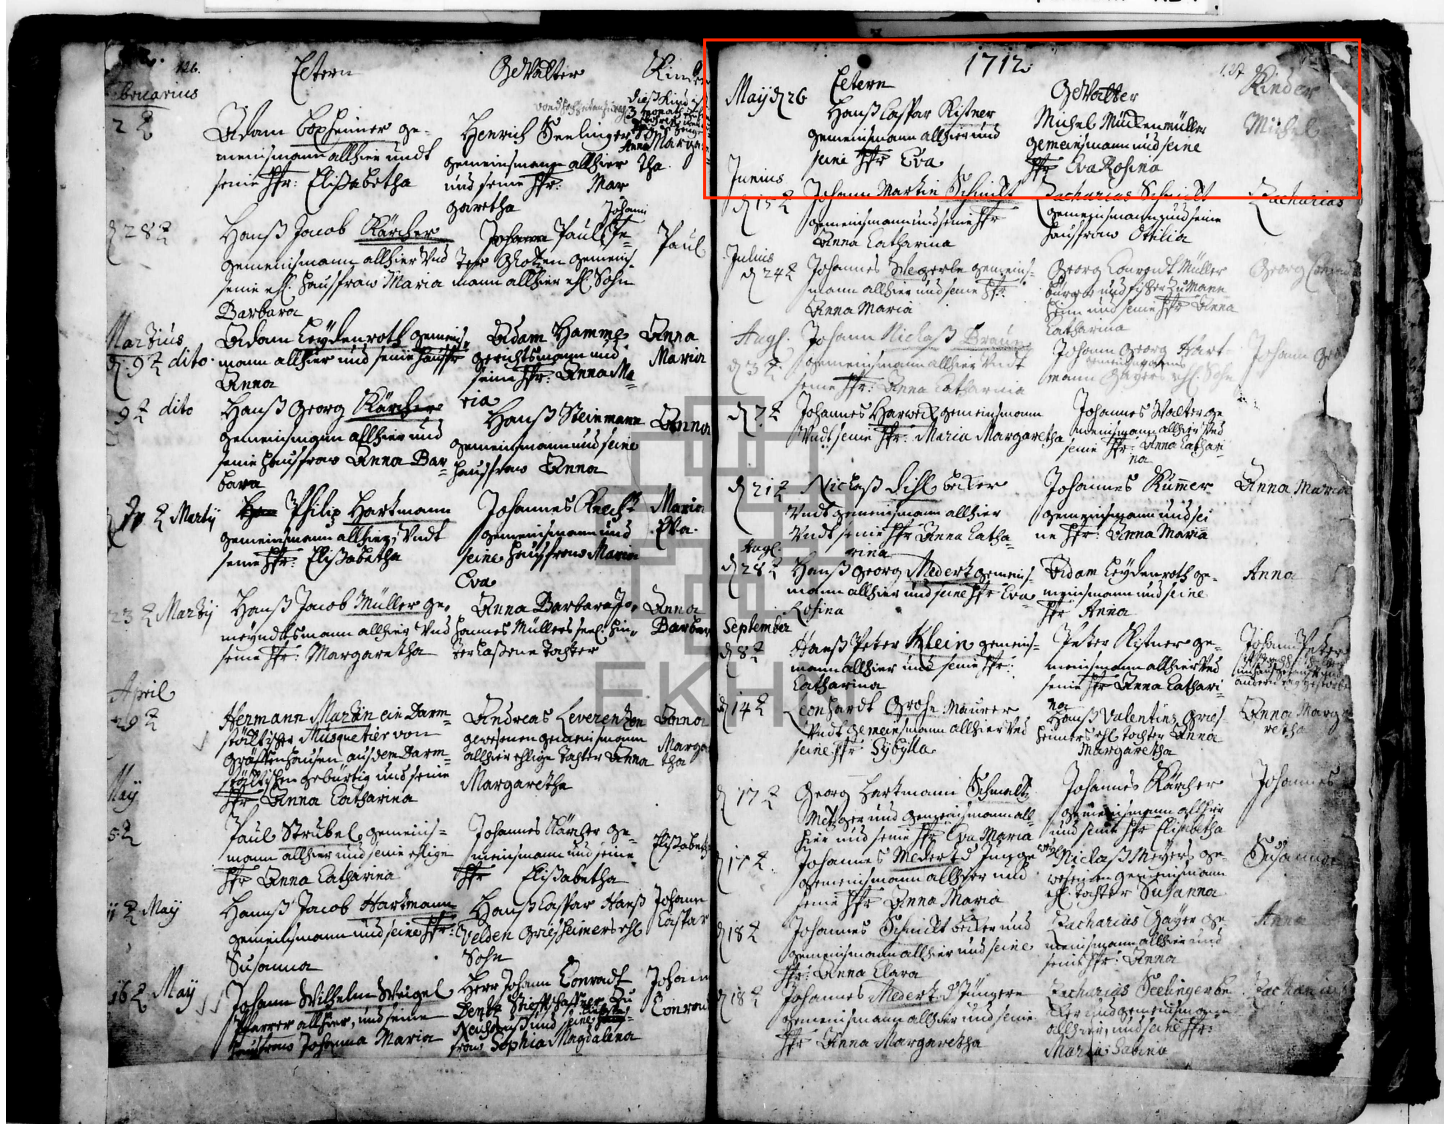 126.
Eltern
Gevatter
Adam Boxheimer ge-
meinsmann allhier undt
seine Hfr: Elisabetha
Henrich Seelinger
gemeinsmann allhier
und seine Hfr: Mar
garetha
Anna Margre
tha
d 28 t
Hanß Jacob Kärcher
gemeinsmann allhier Vnd
seine ehl: haußfraw Maria
Barbara
Johann
gemeins-
mann allhier ehl. Sohn
Paul
Martius
d. 9 t dito
Adam Leydenroth gemeins
mann allhier und seine haußfr
Anna
Adam Hamm
gerichtsmann und
seine Hfr: Anna Ma-
ria
Anna
Maria
9 t dito
Hanß Georg Kärcher
gemeinsmann allhier und
seine haußfraw Anna Bar-
bara
Hanß Steinmann
gemeinsmann und seine
haußfraw Anna
Anna
Marty
Philip Hartmann
gemeinsmann allhier Vndt
seine Hfr: Elisabetha
Johannes Knecht
gemeinsmann und
seine haußfraw Maria
Eva
Maria
Eva
23 t Marty
Hanß Jacob Müller ge-
meyndtsmann allhier Vnd
seine Hfr: Margaretha
Anna Barbara Jo-
hannes Müllers seel. hin-
terlaßene tochter
Anna
Barbar
April
29 t
Hermann Martin ein Darm-
städtischer Musquetier von
Gräffenhausen aus dem Darm-
städtischen gebürtig und seine
Hfr: Anna Catharina
Andreas Leverentzen
gewesenen gemeinsmann
allhier ehlige tochter Anna
Margaretha
Anna
Marga
tha
May
5 t
Paul Strubel gemeins-
mann allhier und seine ehlige
Hfr Anna Catharina
Johannes Kärcher ge-
meinsmann und seine
Hfr Elisabetha
Elisabeth
11 t May
Hanß Jacob Hartmann
gemeinsmann und seine Hfr:
Susanna
Hanß Caspar Hanß
Velden Griesheimers ehl
Sohn
Johann
Caspar
16 t May
Johann Wilhelm Weigel
Pfarrer allhier, und seine
haußfraw Johanna Maria
Herr Johann Conradt
und seine
fraw Sophia Magdalena
Johann
Conrad
1712.
127
Eltern
Gevatter
Kinder
May d 26
Hanß Caspar Kistner
gemeinsmann allhier und
seine Hfr Eva
Michel Mückenmüller
gemeinsmann und seine
Hfr Eva Rosina
Michel
Junius
d 15 t
Johann Martin Schmidt
gemeinsmann und seine Hfr
Anna Catharina
Zacharias Schmidt
gemeinsmann und seine
haußfraw Ottilia
Zacharias
Julius
d 24 t
Johannes Stegerle gemeins-
mann allhier und seine Hfr:
Anna Maria
Georg Conradt Müller
burger und
und seine Hfr Anna
Catharina
Georg Conrad
Augt.
d 3 t
Johann Niclaß Braun
gemeinsmann allhier Vndt
seine Hfr: Anna Catharina
Johann Georg Hart
mann ehl. Sohn
Johann Geo
d 7 t
Johannes Hartweck gemeinsmann
Vndt seine Hfr: Maria Margaretha
Johannes Walter ge
meinsmann allhier Vnd
seine Hfr: Anna Cathari-
na
d 21 t
Niclaß Dihl
Vndt gemeinsmann allhier
Vndt seine Hfr Anna Catha-
rina
Johannes Kumer
gemeinsmann und sei
ne Hfr: Anna Maria
Anna Maria
Augt.
d 28 t
Hanß Georg Medert gemeins-
mann allhier und seine Hfr Eva
Rosina
Adam Leydenroth ge-
meinsmann und seine
Hfr Anna
Anna
September
d 8 t
Hanß Peter Klein gemeins-
mann allhier und seine Hfr:
Catharina
Peter Kistner ge-
meinsmann allhier Vnd
seine Hfr Anna Cathari-
na
Johann Peter
d 14 t
Leonhardt Große Maurer
Vndt gemeinsmann allhier Vnd
seine Hfr: Sybylla
Hanß Valentins Gries-
heimers ehl tochter Anna
Margaretha
Anna Marga
retha
d 17 t
Georg Hartmann Schmaltz
Metzger und gemeinsmann all-
hier und seine Hfr Eva Maria
Johannes Kärcher
gemeinsmann allhier
und seine Hfr Elisabetha
Johannes
d 17 t
Johannes Medert d Junge
gemeinsmann allhier und
seine Hfr: Anna Maria
Niclaß Meyers ge-
wesenen gemeinsmann
ehl. tochter Susanna
Susanna
d 18 t
Johannes Schmidt becker und
gemeinsmann allhier und seine
Hfr: Anna Clara
Zacharias Gayer ge-
meinsmann allhier und
seine Hfr: Anna
Anna
d 18 t
Johannes Medert d Jüngere
gemeinsmann allhier und seine
Hfr Anna Margaretha
Zacharias Seelinger be
cker und gemeinsmann
allhier, und seine Hfr:
Maria Sabina
Zacharias
EKHN